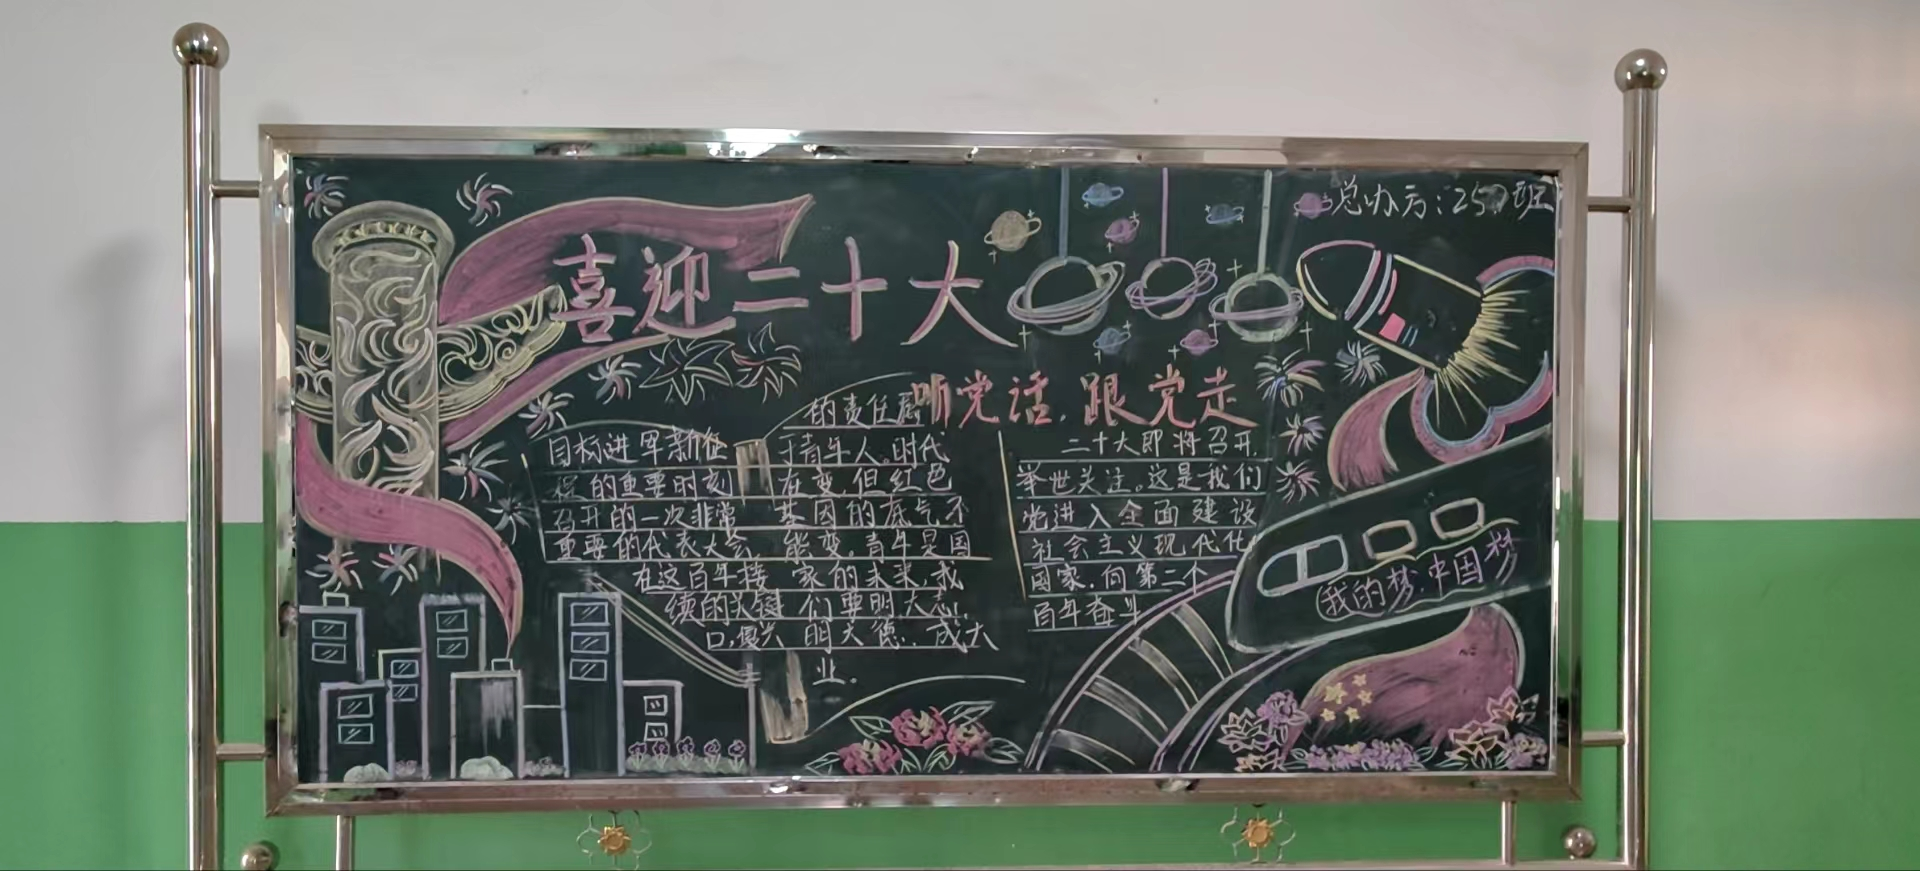 主办方:250班
喜迎二十大
听党话,跟党走
二十大即将召开,
举世关注。这是我们
党进入全面建设
社会主义现代化
国家,向第二个
百年奋斗
目标进军新征
程的重要时刻
召开的一次非常
重要的代表大会,
在这百年接
续的关键
口,复兴
的责任落
于青年人,时代
在变,但红色
基因的底气不
能变。青年是国
家的未来,我
们要明大志,
明大德,成大
业。
我的梦,中国梦